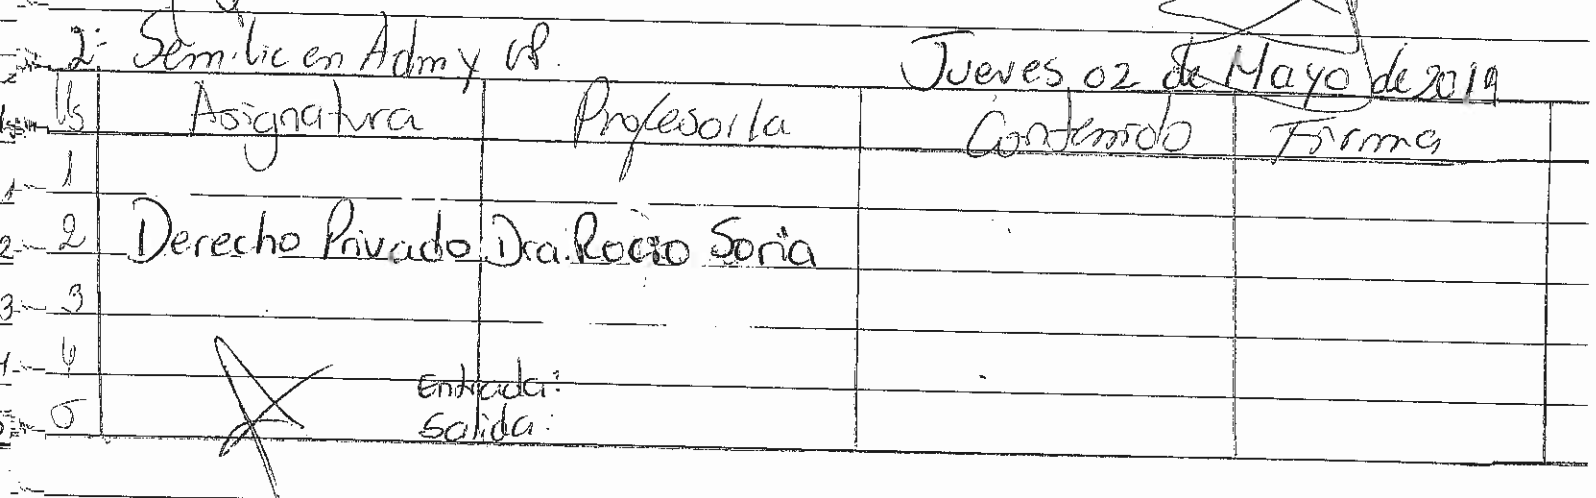 2: Sem. Lic en Adm y
Jueves 02 de Mayo de 2019
Hs Asignatura Profesor/a Contenido Firma
1
2 Derecho Privado Dra. Rocio Soria
3
4
Entrada:
5
Salida: